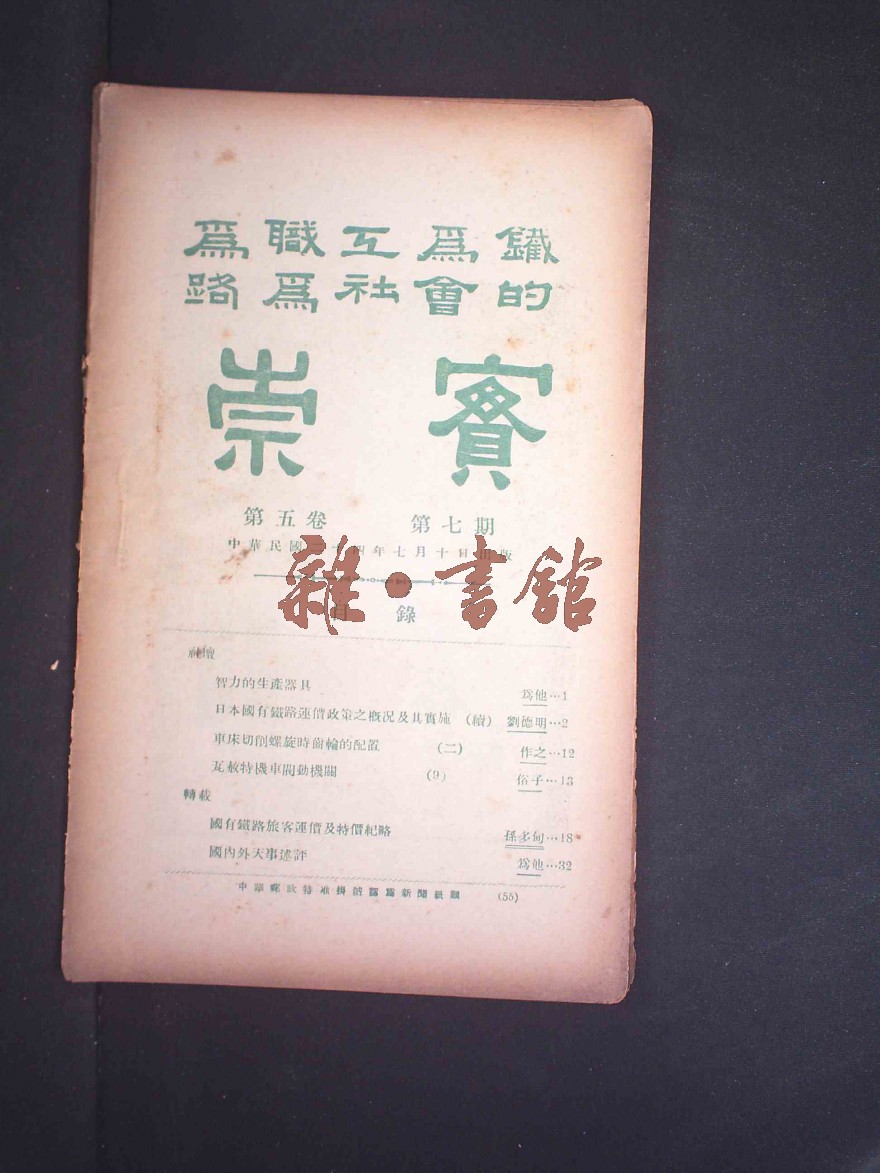 爲職工爲鐵
路爲社會的
崇實
第五卷 第七期
中華民國二十四年七月十日出版
目錄
社壇
智力的生產器具 爲他…1
日本國有鐵路運價政策之概况及其實施 (續) 劉德明…2
車床切削螺旋時齒輪的配置 (二) 作之…12
瓦赦特機車閥動機關 (9) 俗子…13
轉載
國有鐵路旅客運價及特價紀略 孫多甸…18
國內外大事述評 爲他…32
中華郵政特准掛號認爲新聞紙類 (55)
雜·書館